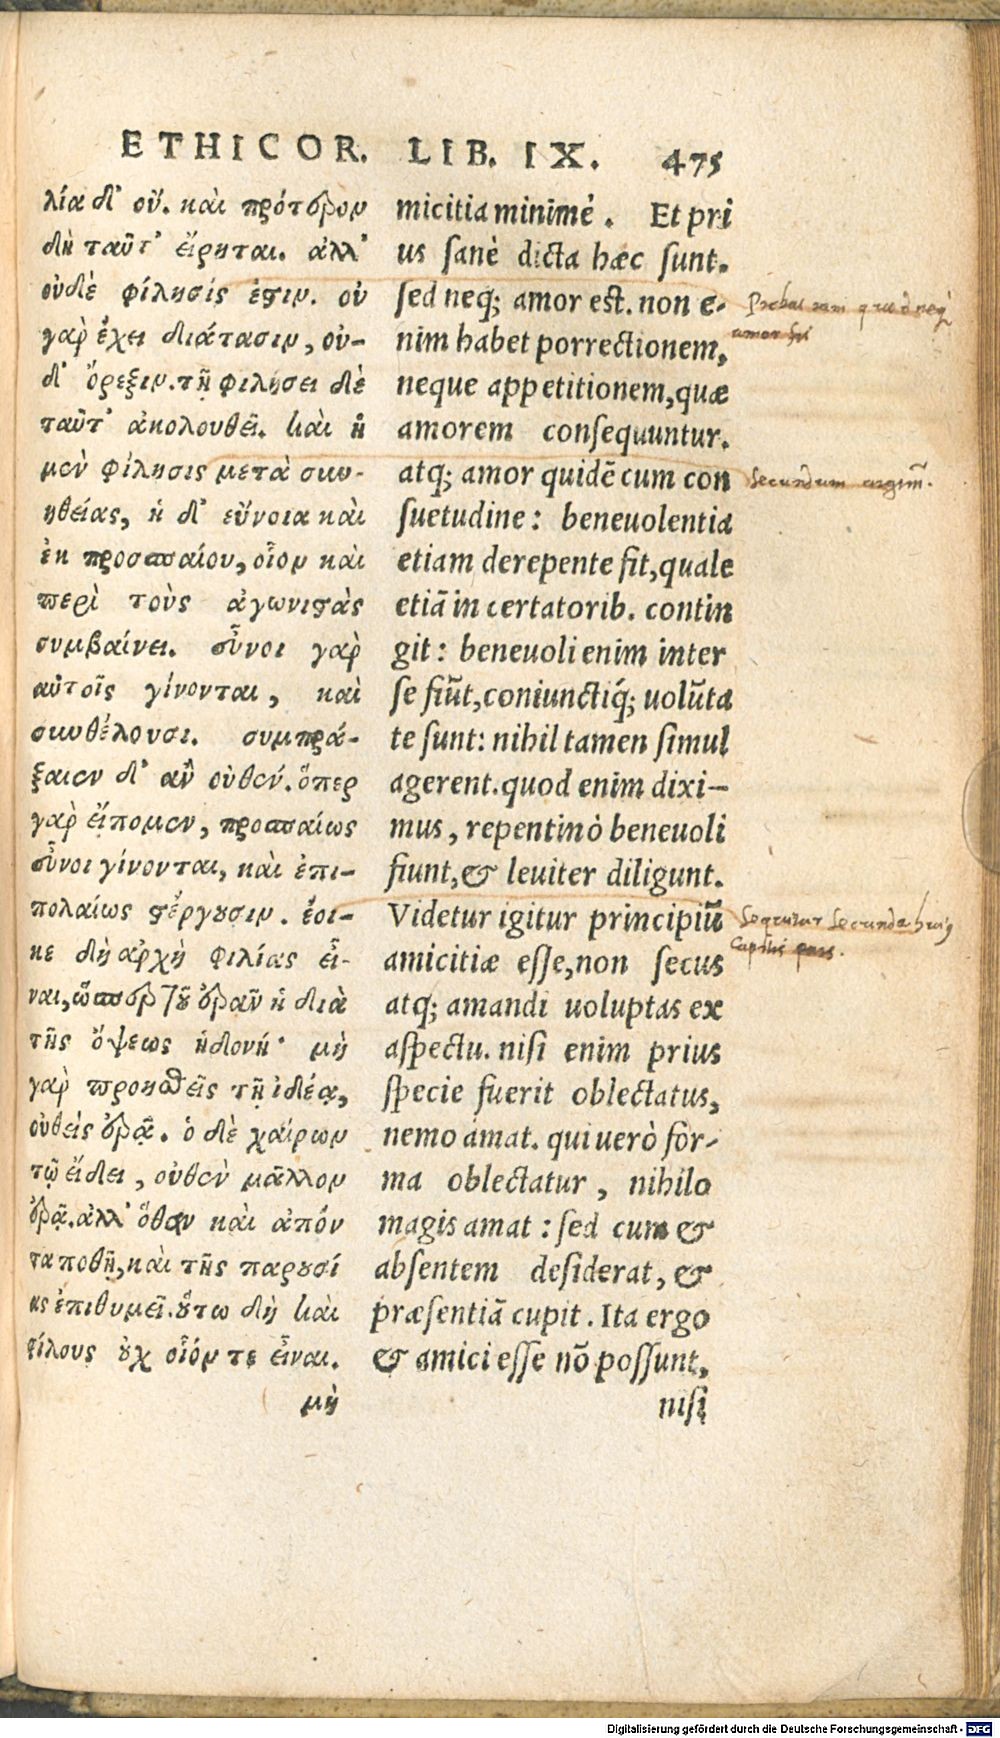 ETHICOR. LIB. IX. 475
λία δ' οὔ. καὶ πρότερον
δὴ ταῦτ' εἴρηται. ἀλλ'
οὐδὲ φίλησίς ἐστιν. οὐ
γὰρ ἔχει διάτασιν, οὐ-
δ' ὄρεξιν. τῇ φιλήσει δὲ
ταῦτ' ἀκολουθεῖ. καὶ ἡ
μὲν φίλησις μετὰ συν-
ηθείας, ἡ δ' εὔνοια καὶ
ἐκ προσπαίου, οἷον καὶ
περὶ τοὺς ἀγωνιστὰς
συμβαίνει. εὖνοι γὰρ
αὐτοῖς γίνονται, καὶ
συνθέλουσι. συμπρά-
ξαιεν δ' ἂν οὐθέν. ὅπερ
γὰρ εἴπομεν, προσπαίως
εὖνοι γίνονται, καὶ ἐπι-
πολαίως στέργουσιν. ἔοι-
κε δὴ ἀρχὴ φιλίας εἶ-
ναι, ὥσπερ τοῦ ἐρᾶν ἡ διὰ
τῆς ὄψεως ἡδονή· μὴ
γὰρ προησθεὶς τῇ ἰδέᾳ,
οὐθεὶς ἐρᾷ. ὁ δὲ χαίρων
τῷ εἴδει, οὐθὲν μᾶλλον
ἐρᾷ. ἀλλ' ὅθεν καὶ ἀπόν
τα ποθῇ, καὶ τῆς παρουσί
ας ἐπιθυμεῖ. οὕτω δὴ καὶ
φίλους οὐχ οἷόν τε εἶναι.
μὴ
micitia minimè. Et pri
us sanè dicta hæc sunt.
sed neq; amor est. non e-
nim habet porrectionem,
neque appetitionem, quæ
amorem consequuntur.
atq; amor quidē cum con
suetudine: beneuolentia
etiam derepente fit, quale
etiā in certatorib. contin
git: beneuoli enim inter
se fiūt, coniunctiq́; uolūta
te sunt: nihil tamen simul
agerent. quod enim dixi-
mus, repentinò beneuoli
fiunt, & leuiter diligunt.
Videtur igitur principiū
amicitiæ esse, non secus
atq; amandi uoluptas ex
aspectu. nisi enim prius
specie fuerit oblectatus,
nemo amat. qui uerò for-
ma oblectatur, nihilo
magis amat: sed cum &
absentem desiderat, &
præsentiā cupit. Ita ergo
& amici esse nō possunt,
nisi
Probat quod neq;
amor sit
Secundum argum̄.
Sequitur secunda huiꝰ
Capitis pars.
Digitalisierung gefördert durch die Deutsche Forschungsgemeinschaft - DFG